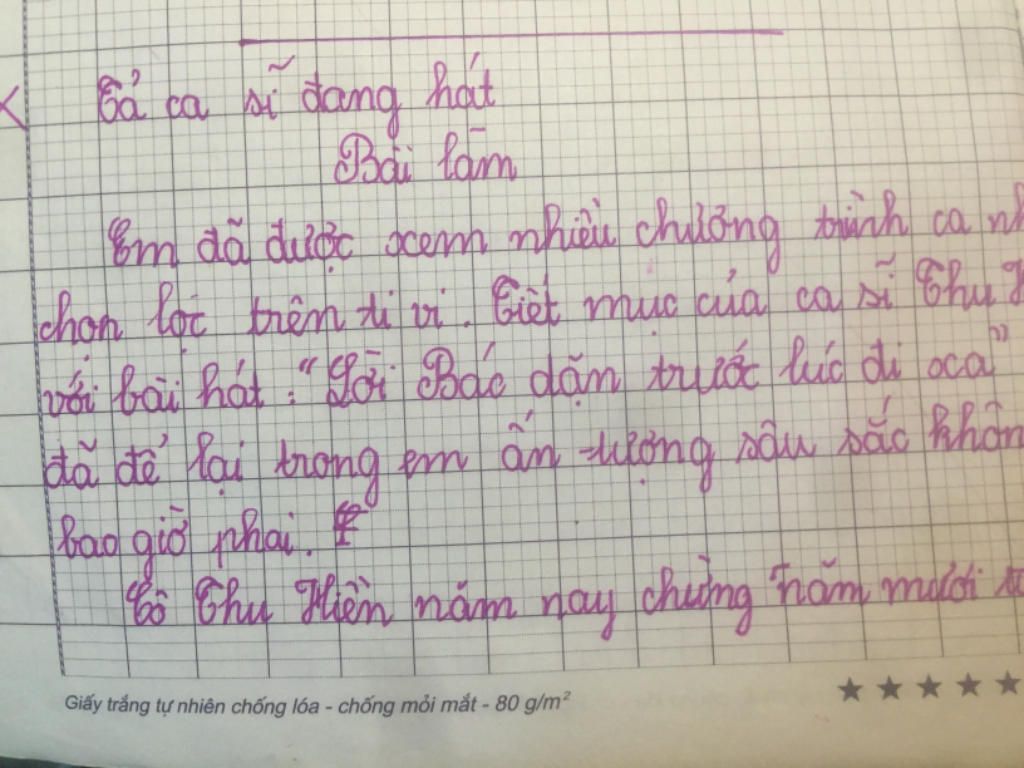 Tả ca sĩ đang hát
Bài làm
Em đã được xem nhiều chương trình ca nh
chọn lọc trên ti vi. Tiết mục của ca sĩ Thu H
với bài hát: "Lời Bác dặn trước lúc đi xa"
đã để lại trong em ấn tượng sâu sắc khôn
bao giờ phai.
Cô Thu Hiền năm nay chừng năm mươi t
Giấy trắng tự nhiên chống lóa - chống mỏi mắt - 80 g/m²